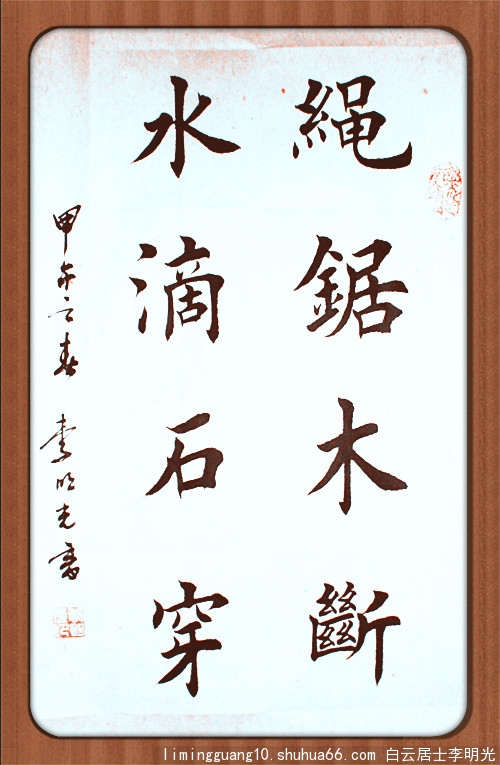 繩鋸木斷
水滴石穿
甲午之春 李明光書
limingguang10.shuhua66.com 白云居士李明光